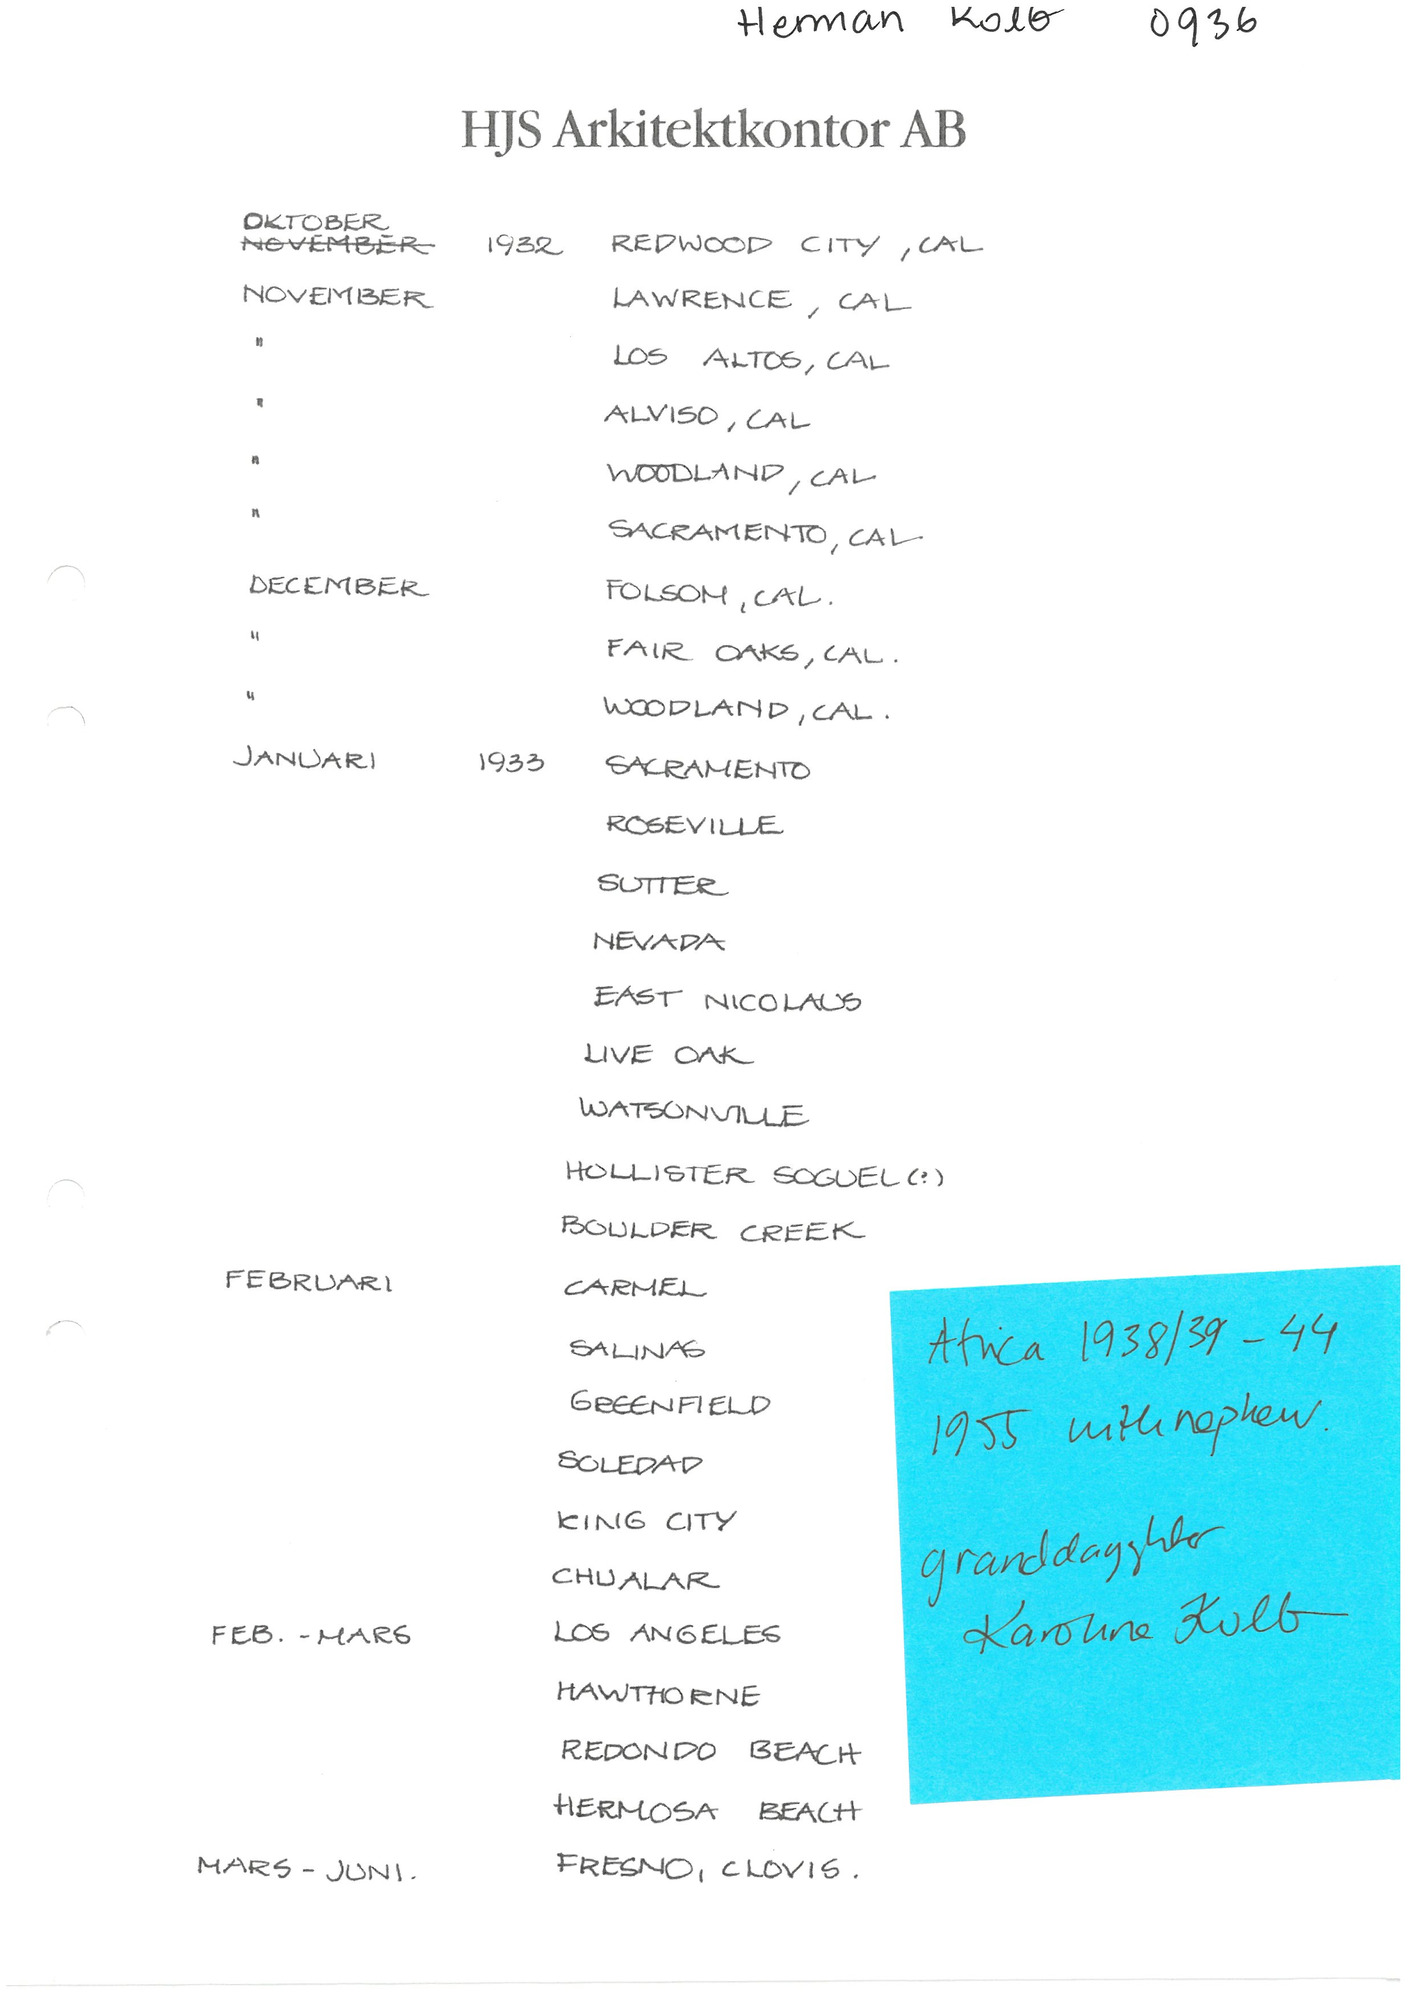 Herman Kolb 0936
HJS Arkitektkontor AB
OKTOBER
NOVEMBER 1932 REDWOOD CITY, CAL
NOVEMBER LAWRENCE, CAL
" LOS ALTOS, CAL
" ALVISO, CAL
" WOODLAND, CAL
" SACRAMENTO, CAL
DECEMBER FOLSOM, CAL.
" FAIR OAKS, CAL.
" WOODLAND, CAL.
JANUARI 1933 SACRAMENTO
ROSEVILLE
SUTTER
NEVADA
EAST NICOLAUS
LIVE OAK
WATSONVILLE
HOLLISTER SOGUEL (?)
BOULDER CREEK
FEBRUARI CARMEL
SALINAS
GREENFIELD
SOLEDAD
KING CITY
CHUALAR
FEB. - MARS LOS ANGELES
HAWTHORNE
REDONDO BEACH
HERMOSA BEACH
MARS - JUNI. FRESNO, CLOVIS.
Africa 1938/39 - 44
1955 with nephew.
granddaughter
Karoline Kolb